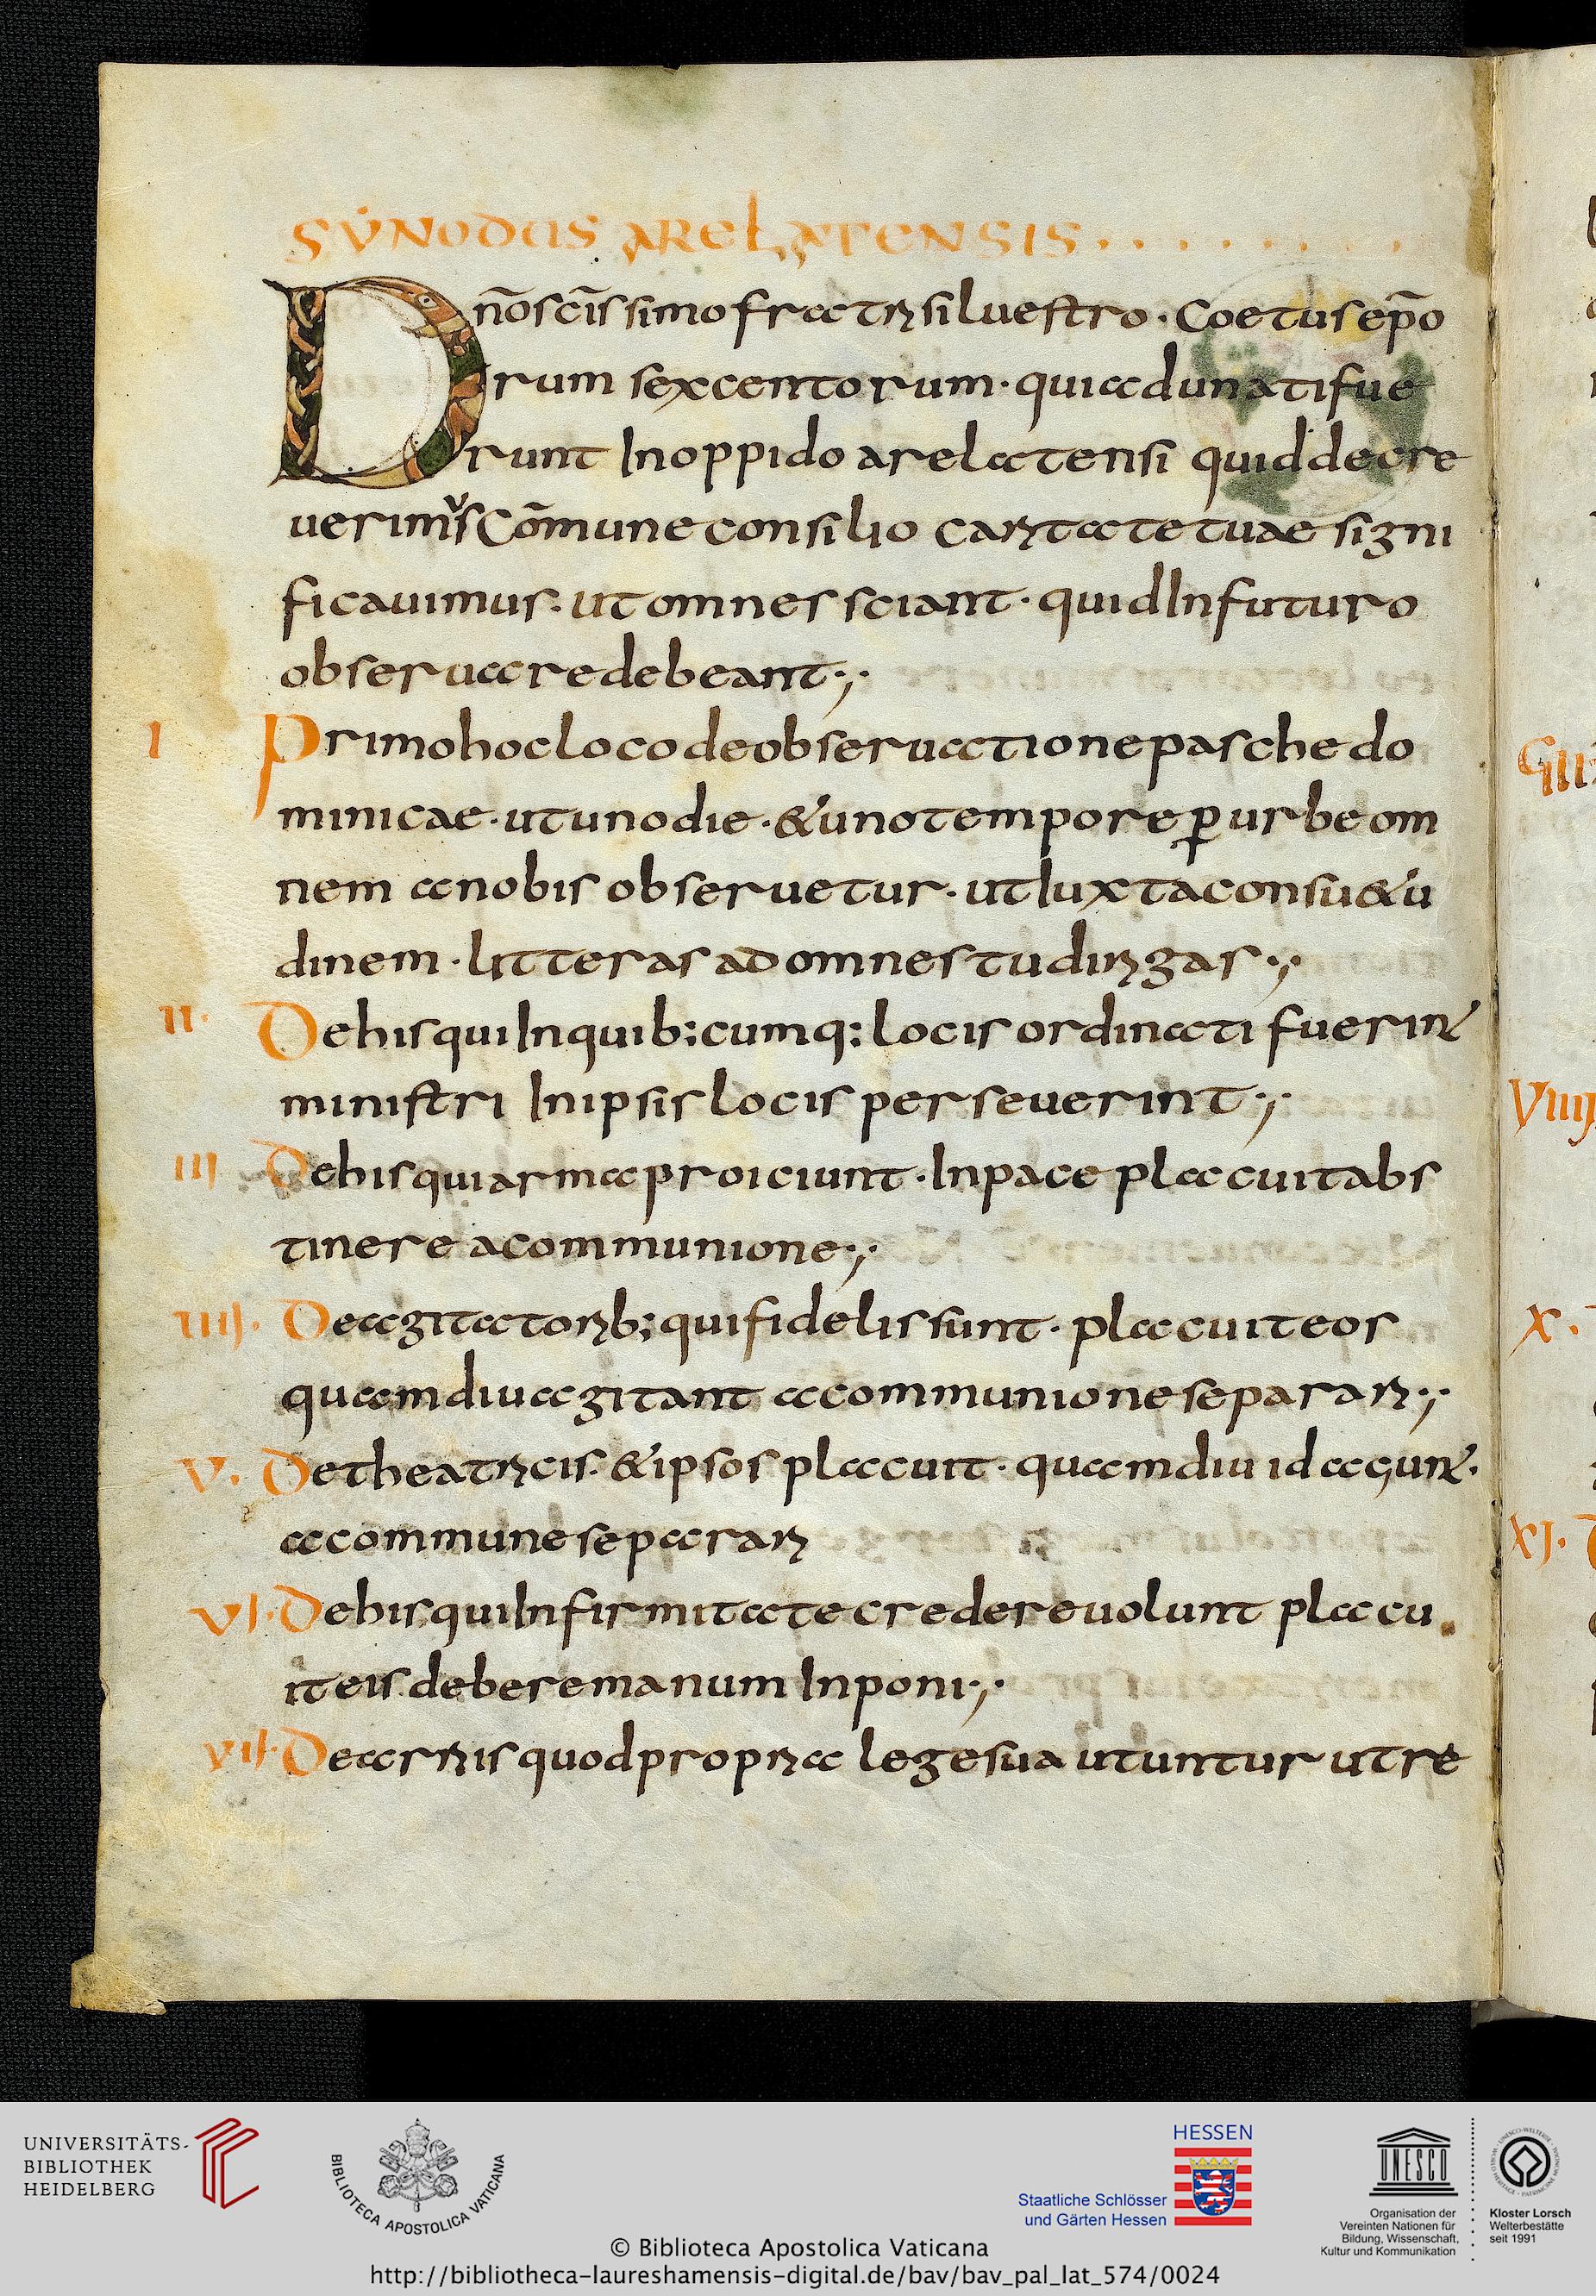 SYNODUS ARELATENSIS . . . . . . . . .
Dn̄o sc̄issimo fratri siluestro · Coetus ep̄o
rum sexcentorum · qui adunati fue
runt In oppido arelatensi quid decre
uerimus Com̄une consilio caritate tuae signi
ficauimus · ut omnes sciant · quid In futuro
obseruare debeant ·,·
I Primo hoc loco de obseruatione pasche do
minicae · ut uno die · & uno tempore ꝑ urbe om
nem a nobis obseruetur · ut Iuxta consu&u
dinem · litteras ad omnes tu dirigas ·,·
II · De his qui In quib; cumq; locis ordinati fuerint
ministri In ipsis locis perseuerint ·,·
III De his qui arma proiciunt · In pace placuit abs
tinere a communione ·,·
IIII · De agitatorib; qui fidelis sunt · placuit eos
quamdiu agitant a communione separari ·,·
V · De theatricis · & ipsos placuit · quamdiu id agunt ·
a commune separari
VI · De his qui In firmitate credere uolunt placu
it eis debere manum Inponi ·,·
VII · De arris quod propria lege sua utuntur ut re
GII
VIIII
X ·
XI ·
UNIVERSITÄTS-
BIBLIOTHEK
HEIDELBERG
BIBLIOTECA APOSTOLICA VATICANA
HESSEN
Staatliche Schlösser
und Gärten Hessen
UNESCO
Organisation der
Vereinten Nationen für
Bildung, Wissenschaft,
Kultur und Kommunikation
WORLD HERITAGE · PATRIMOINE MONDIAL
Kloster Lorsch
Welterbestätte
seit 1991
© Biblioteca Apostolica Vaticana
http://bibliotheca-laureshamensis-digital.de/bav/bav_pal_lat_574/0024